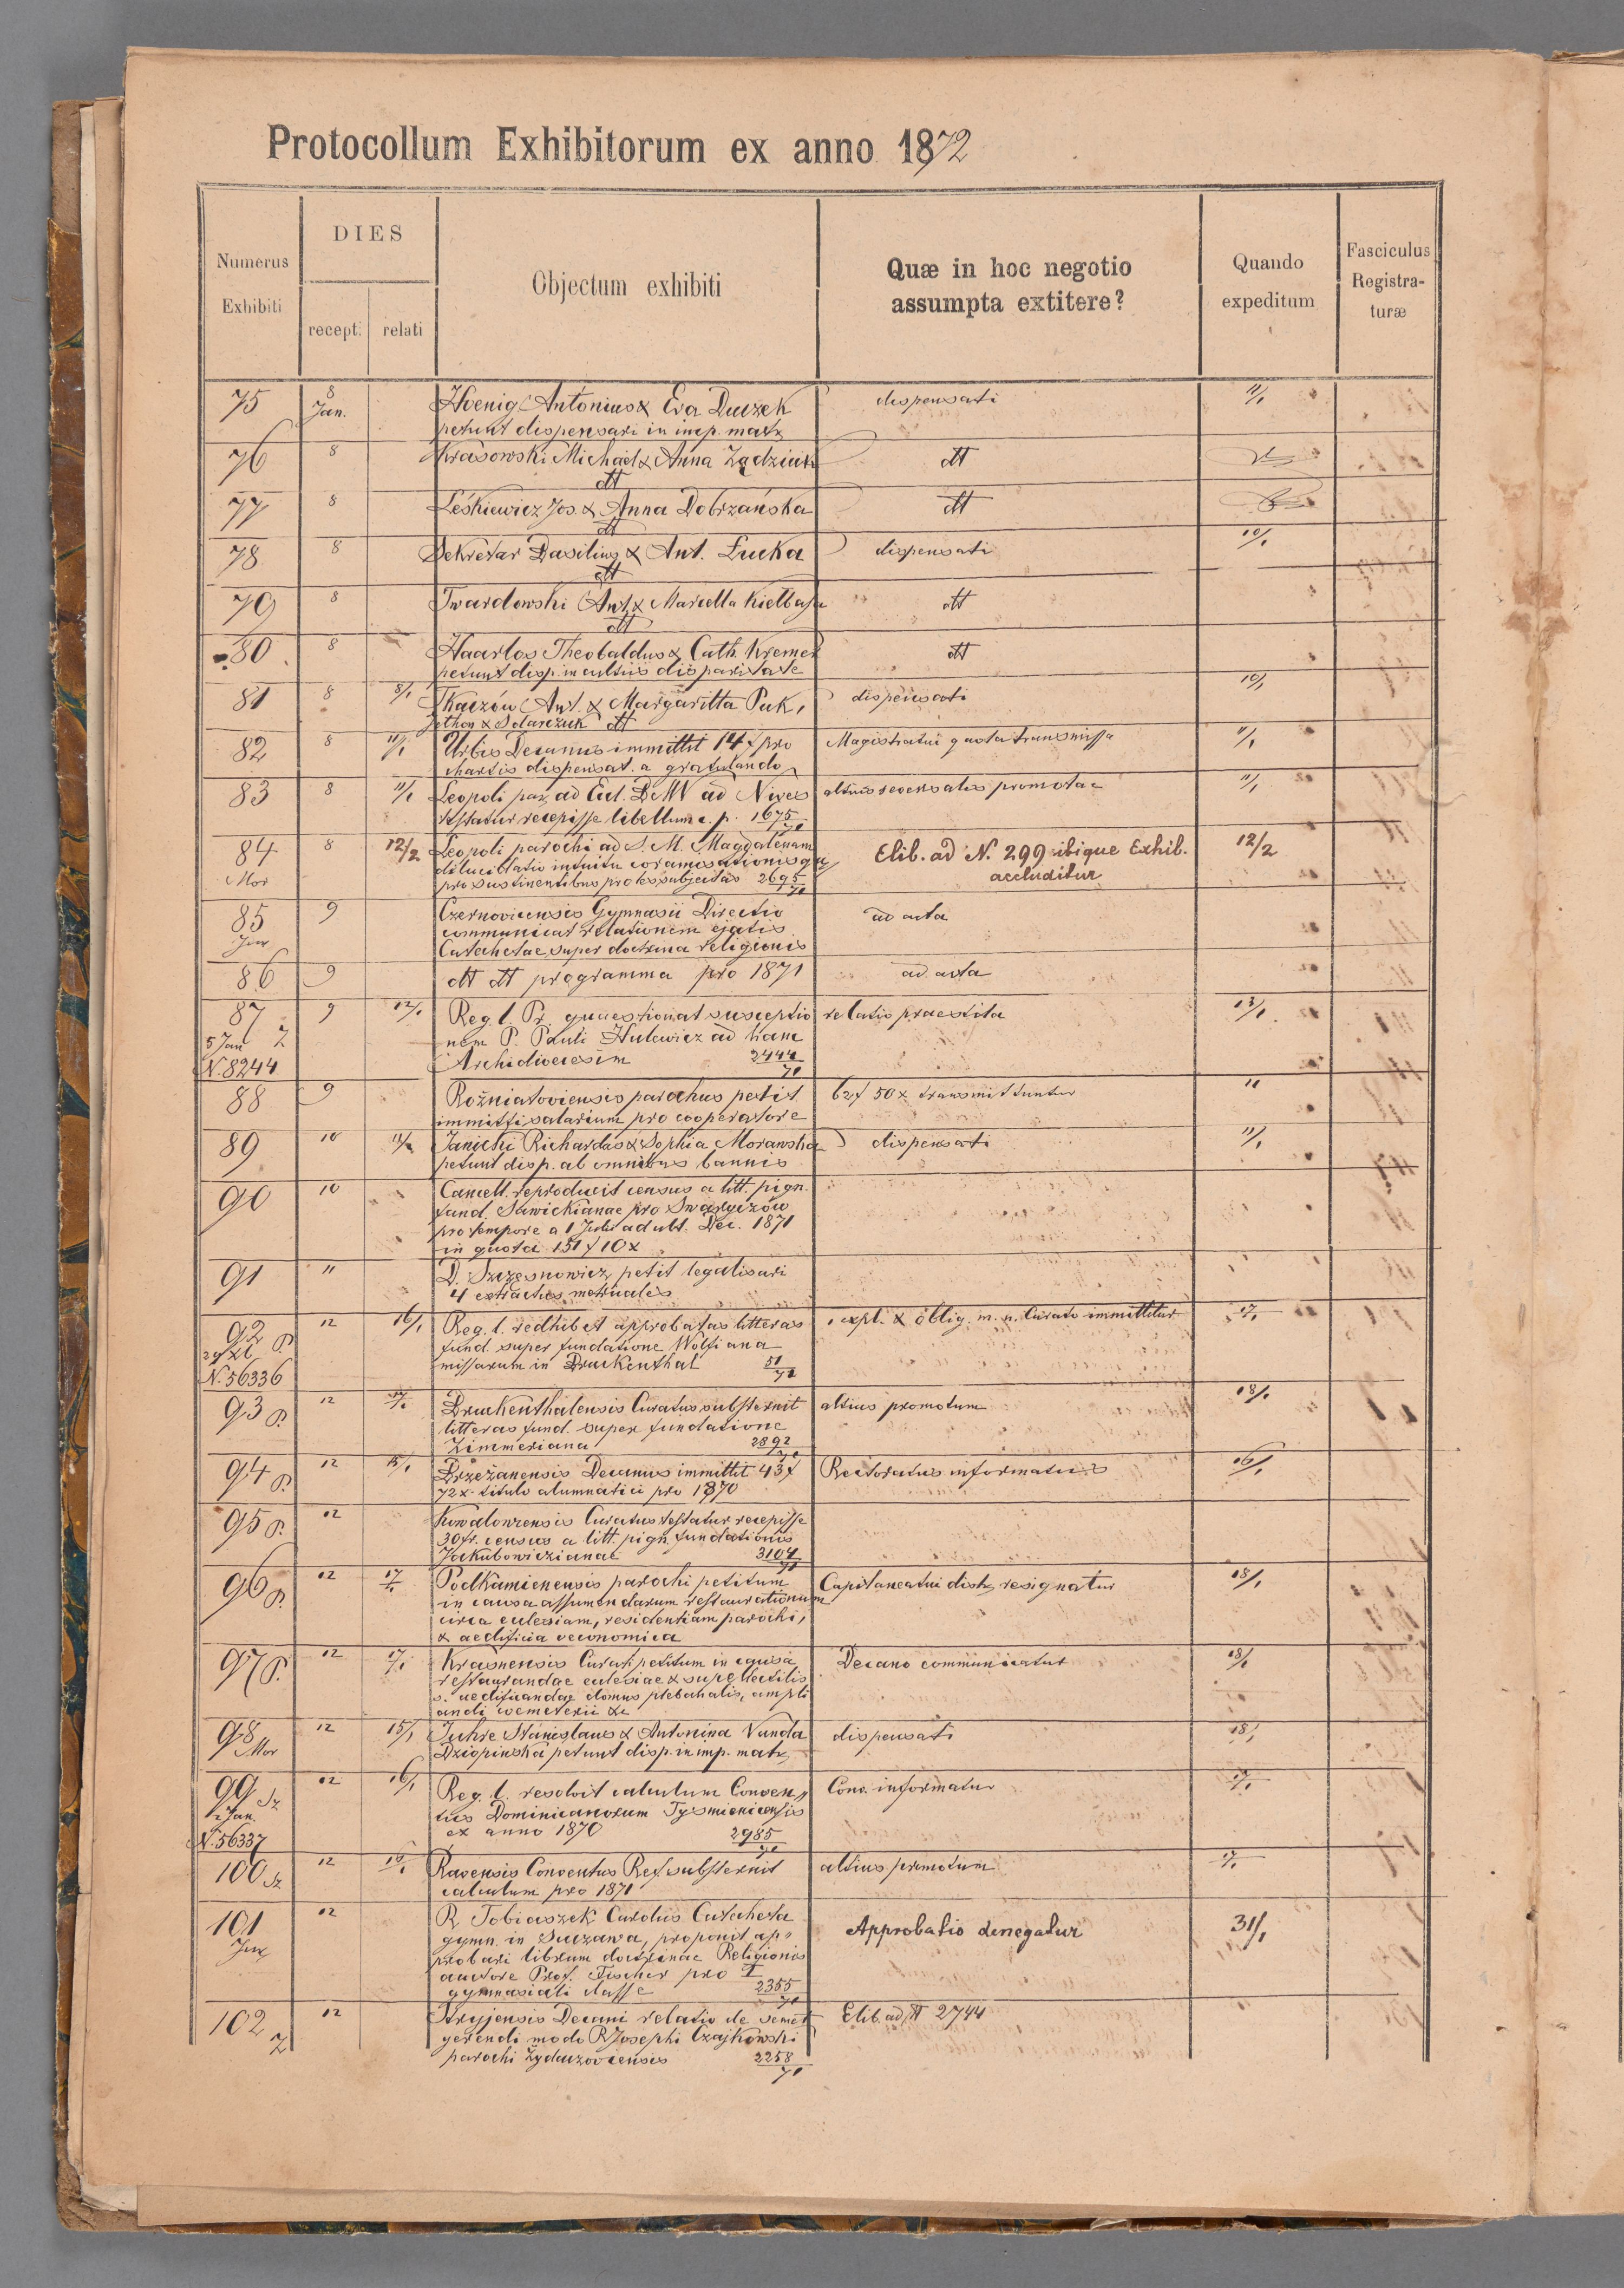 Protocollum Exhibitorum ex anno 1872
Numerus Exhibiti
DIES
recept.
relati
Objectum exhibiti
Quæ in hoc negotio
assumpta extitere?
Quando
expeditum
Fasciculus
Registra-
turæ
75 8 Jan. Hoenig Antonius & Eva Duczek dispensati 11/1
petunt dispensari in imp. matr.
76 8 Krasowski Michael & Anna dtt
dtt
77 8 Leśkiewicz Jos. & Anna Dobrzańska dtt
dtt
78 8 Sekretar Basilius & Ant. Łucka dispensati 10/1
dtt
79 8 Twardowski Ant. & Marcella Kiełbasa dtt
dtt
80 8 Haarlos Theobaldus & Cath. Kremer dtt
petunt disp. in cultus disparitate
81 8 8/1 Tkaczów Ant. & Margaritta Puk, dispensati 10/1
& dtt
82 8 11/1 Urbis Decanus immittit 14 f pro Magistratui transmissa 11/1
chartis dispensat. a gratulando
83 8 11/1 Leopoli par. ad Eccl. BMV ad Nives altius promotae 11/1
testatur recepisse libellum c. p. 1675/71
84 8 12/2 Leopoli parochi ad S. M. Magdalenam Elib. ad N. 299 ibique Exhib. 12/2
Mor dilucidatio intuitu accluditur
pro sustinentibus 2695/71
85 9 Czernoviensis Gymnasii Directio ad acta
communicat relationem
Catechetae super doctrina religionis
86 9 dtt dtt programma pro 1871 ad acta
87 9 12/1 Reg. l. Pr. quaestionat susceptio relatio praestita 13/1
5 Jan Z nem P. Pauli Hulewicz ad hanc
N. 8244 Archidioecesim 2444/71
88 9 Rożniatoviensis parochus petit 62 f 50 x transmittuntur 11
immitti salarium pro cooperatore
89 10 Janicki Richardus & Sophia Morawska dispensati 11/1
petunt disp. ab omnibus bannis
90 10 Cancell. reproducit census a litt. pign.
fund. Sawickianae pro
pro tempore a 1 ad ult. Dec. 1871
in quota 151 f 10 x
91 11 D. Szczęsnowicz petit legalisari
4 extractus metricales
92 P. 12 16/1 Reg. l. redhibet approbatas litteras expl. & oblig. m. n. Curato immittitur 17/1
fund. super fundatione Wolfiana
N. 56336 missarum in Bruckenthal 51/71
93 P. 12 17/1 Bruckenthalensis Curatus substernit altius promotum 18/1
litteras fund. super fundatione
Zimmeriana 2892/71
94 P. 12 15/1 Brzeżanensis Decanus immittit 43 f Rectoratus informatus 16/1
72 x titulo alumnatici pro 1870
95 P. 12 Curatus testatur recepisse
30 fr. census a litt. pign. fundationis
Jakubowiczianae 3104/71
96 P. 12 17/1 Podkamienensis parochi petitum Capitaneatui distr. resignatur 18/1
in causa assumendarum restaurationum
circa ecclesiam, residentiam parochi,
& aedificia oeconomica
97 P. 12 17/1 Krasnensis Curati petitum in causa Decano communicatur 18/1
restaurandae ecclesiae & supellectilis
s. aedificandae domus plebanalis, ampli
andi coemeterii &c
98 Mor 12 15/1 Stanislaus & Antonina Vanda dispensati 18/1
petunt disp. in imp. matr.
99 Sz 12 16/1 Reg. l. resolvit calculum Conven Conv. informatur 17/1
2 Jan tus Dominicanorum Tysmienicensis
N. 56337 ex anno 1870 2985/71
100 Sz 12 16/1 Ravensis Conventus Ref. substernit altius promotum 17/1
calculum pro 1871
101 12 R. Tobiaszek Carolus Catecheta Approbatio denegatur 31/1
gymn. in Suczawa, proponit ap-
probari librum doctrinae Religionis
auctore Prof. Fischer pro I
gymnasiali classe 2355/71
102 Z 12 Stryjensis Decani relatio de semet Elib. ad N 2744
gerendi modo R Josephi Czajkowski
parochi Żydaczoviensis 2258/71